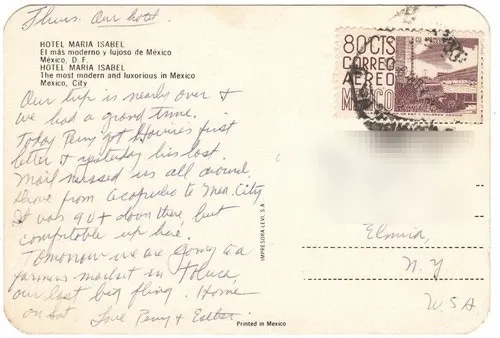 Thurs. Our hotel.
HOTEL MARIA ISABEL
El más moderno y lujoso de México
México, D. F.
HOTEL MARIA ISABEL
The most modern and luxurious in Mexico
Mexico, City
Our trip is nearly over &
we had a grand time.
Today Perry got Howies first
letter & yesterday his last.
Mail missed us all around.
Drove from Acapulco to Mex. City
It was 90+ down there, but
comfortable up here.
Tomorrow we are going to a
farmers market in Toluca
our last big fling. Home
on Sat. Love Perry & Esther.
80CTS
CORREO
AEREO
MEXICO
IMPRESORA LEVI, S.A
Elmira,
N.Y
USA
Printed in Mexico